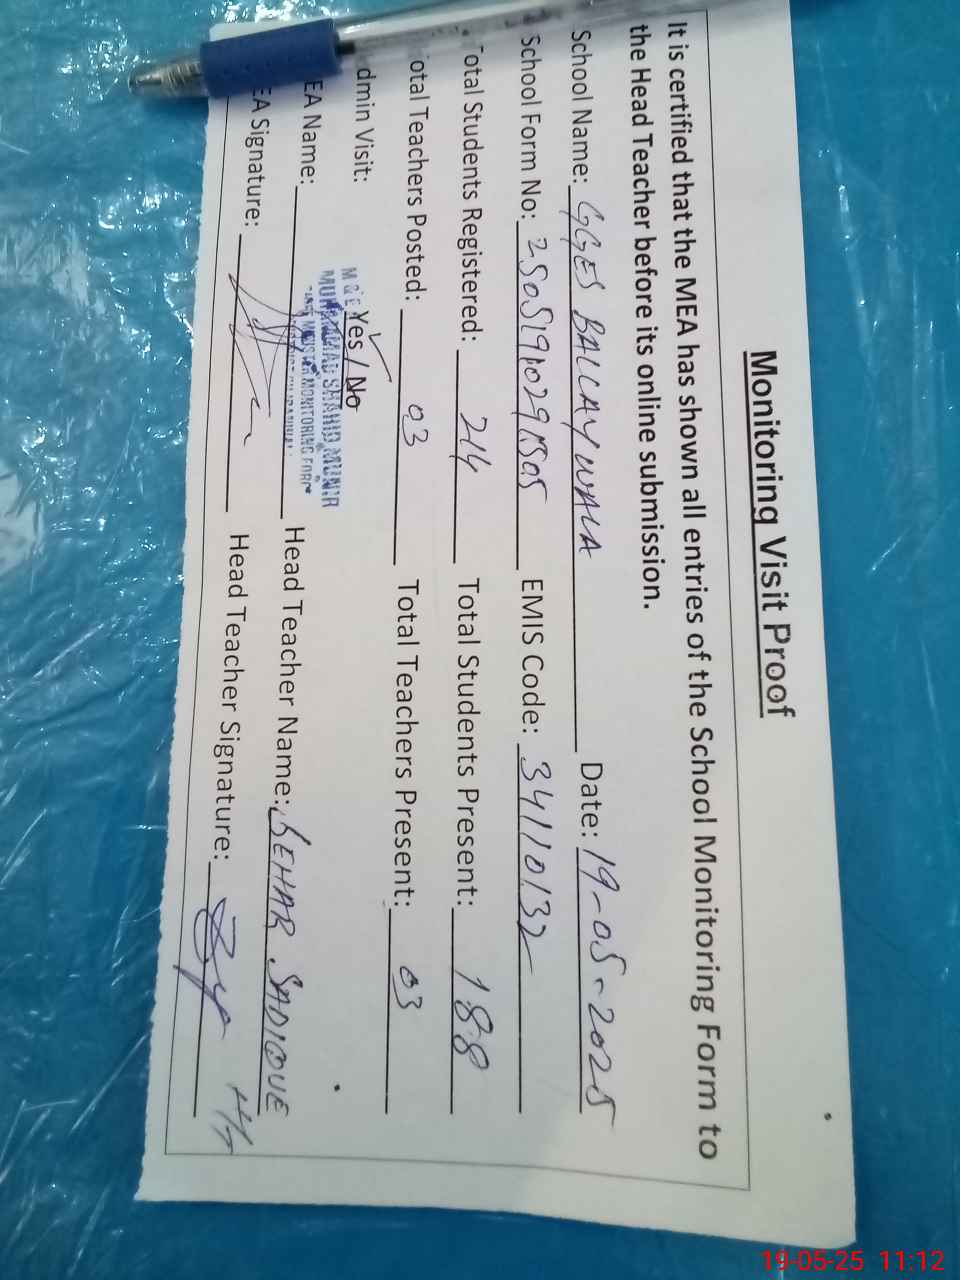 Monitoring Visit Proof
It is certified that the MEA has shown all entries of the School Monitoring Form to
the Head Teacher before its online submission.
School Name: GGES BALLAYWALA Date: 19-05-2025
School Form No: EMIS Code: 34110132
otal Students Registered: 214 Total Students Present: 188
otal Teachers Posted: 03 Total Teachers Present: 03
dmin Visit: Yes / No
M & E
EA Name: MUHAMMAD SHAHID MUNIR Head Teacher Name: SEHAR SADIQUE
MONITORING FORC
EA Signature: Head Teacher Signature:
19-05-25 11:12